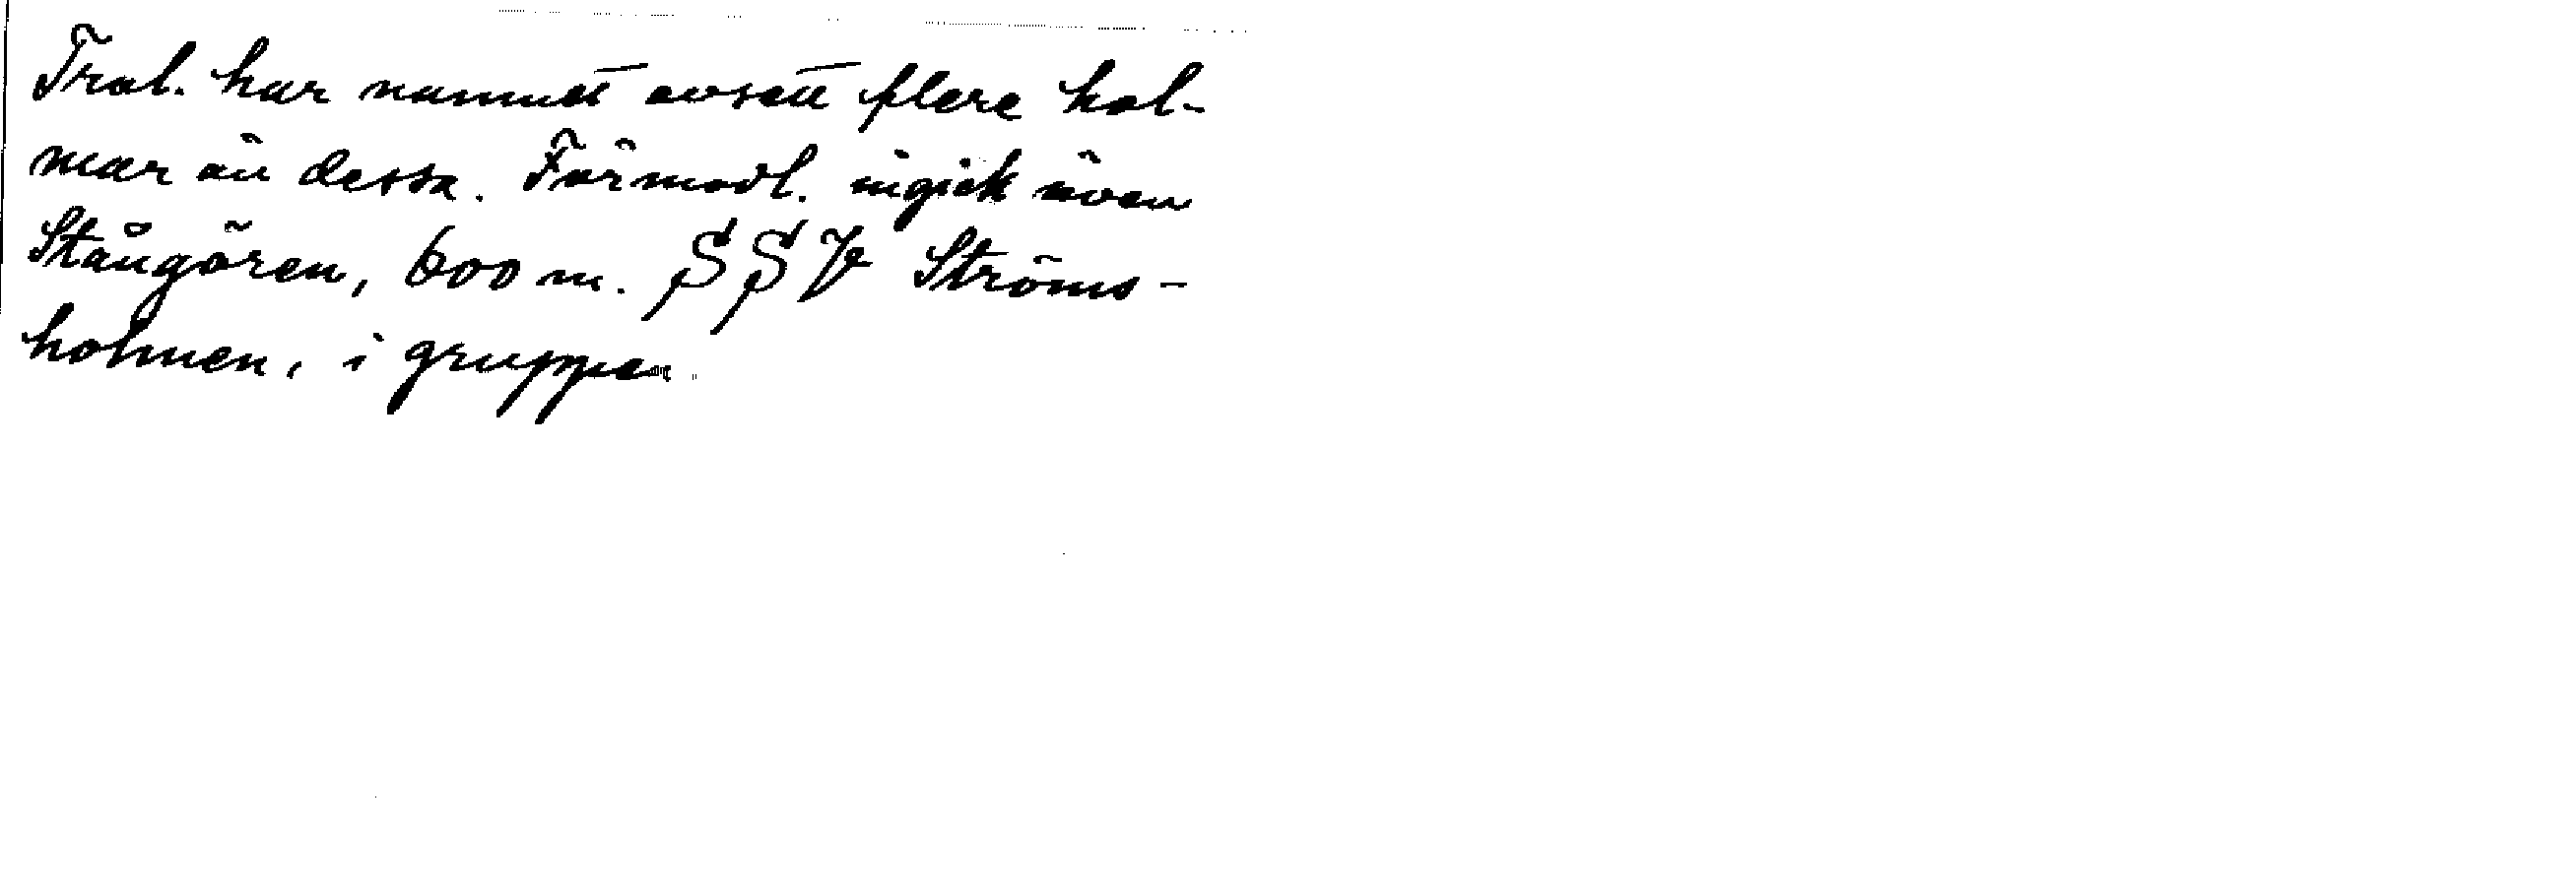 Trol. har namnet avsett flere hol-
mar än dessa. Förmodl. ingick även
Stångören, 600 m. SSV Ströms-
holmen, i gruppen.